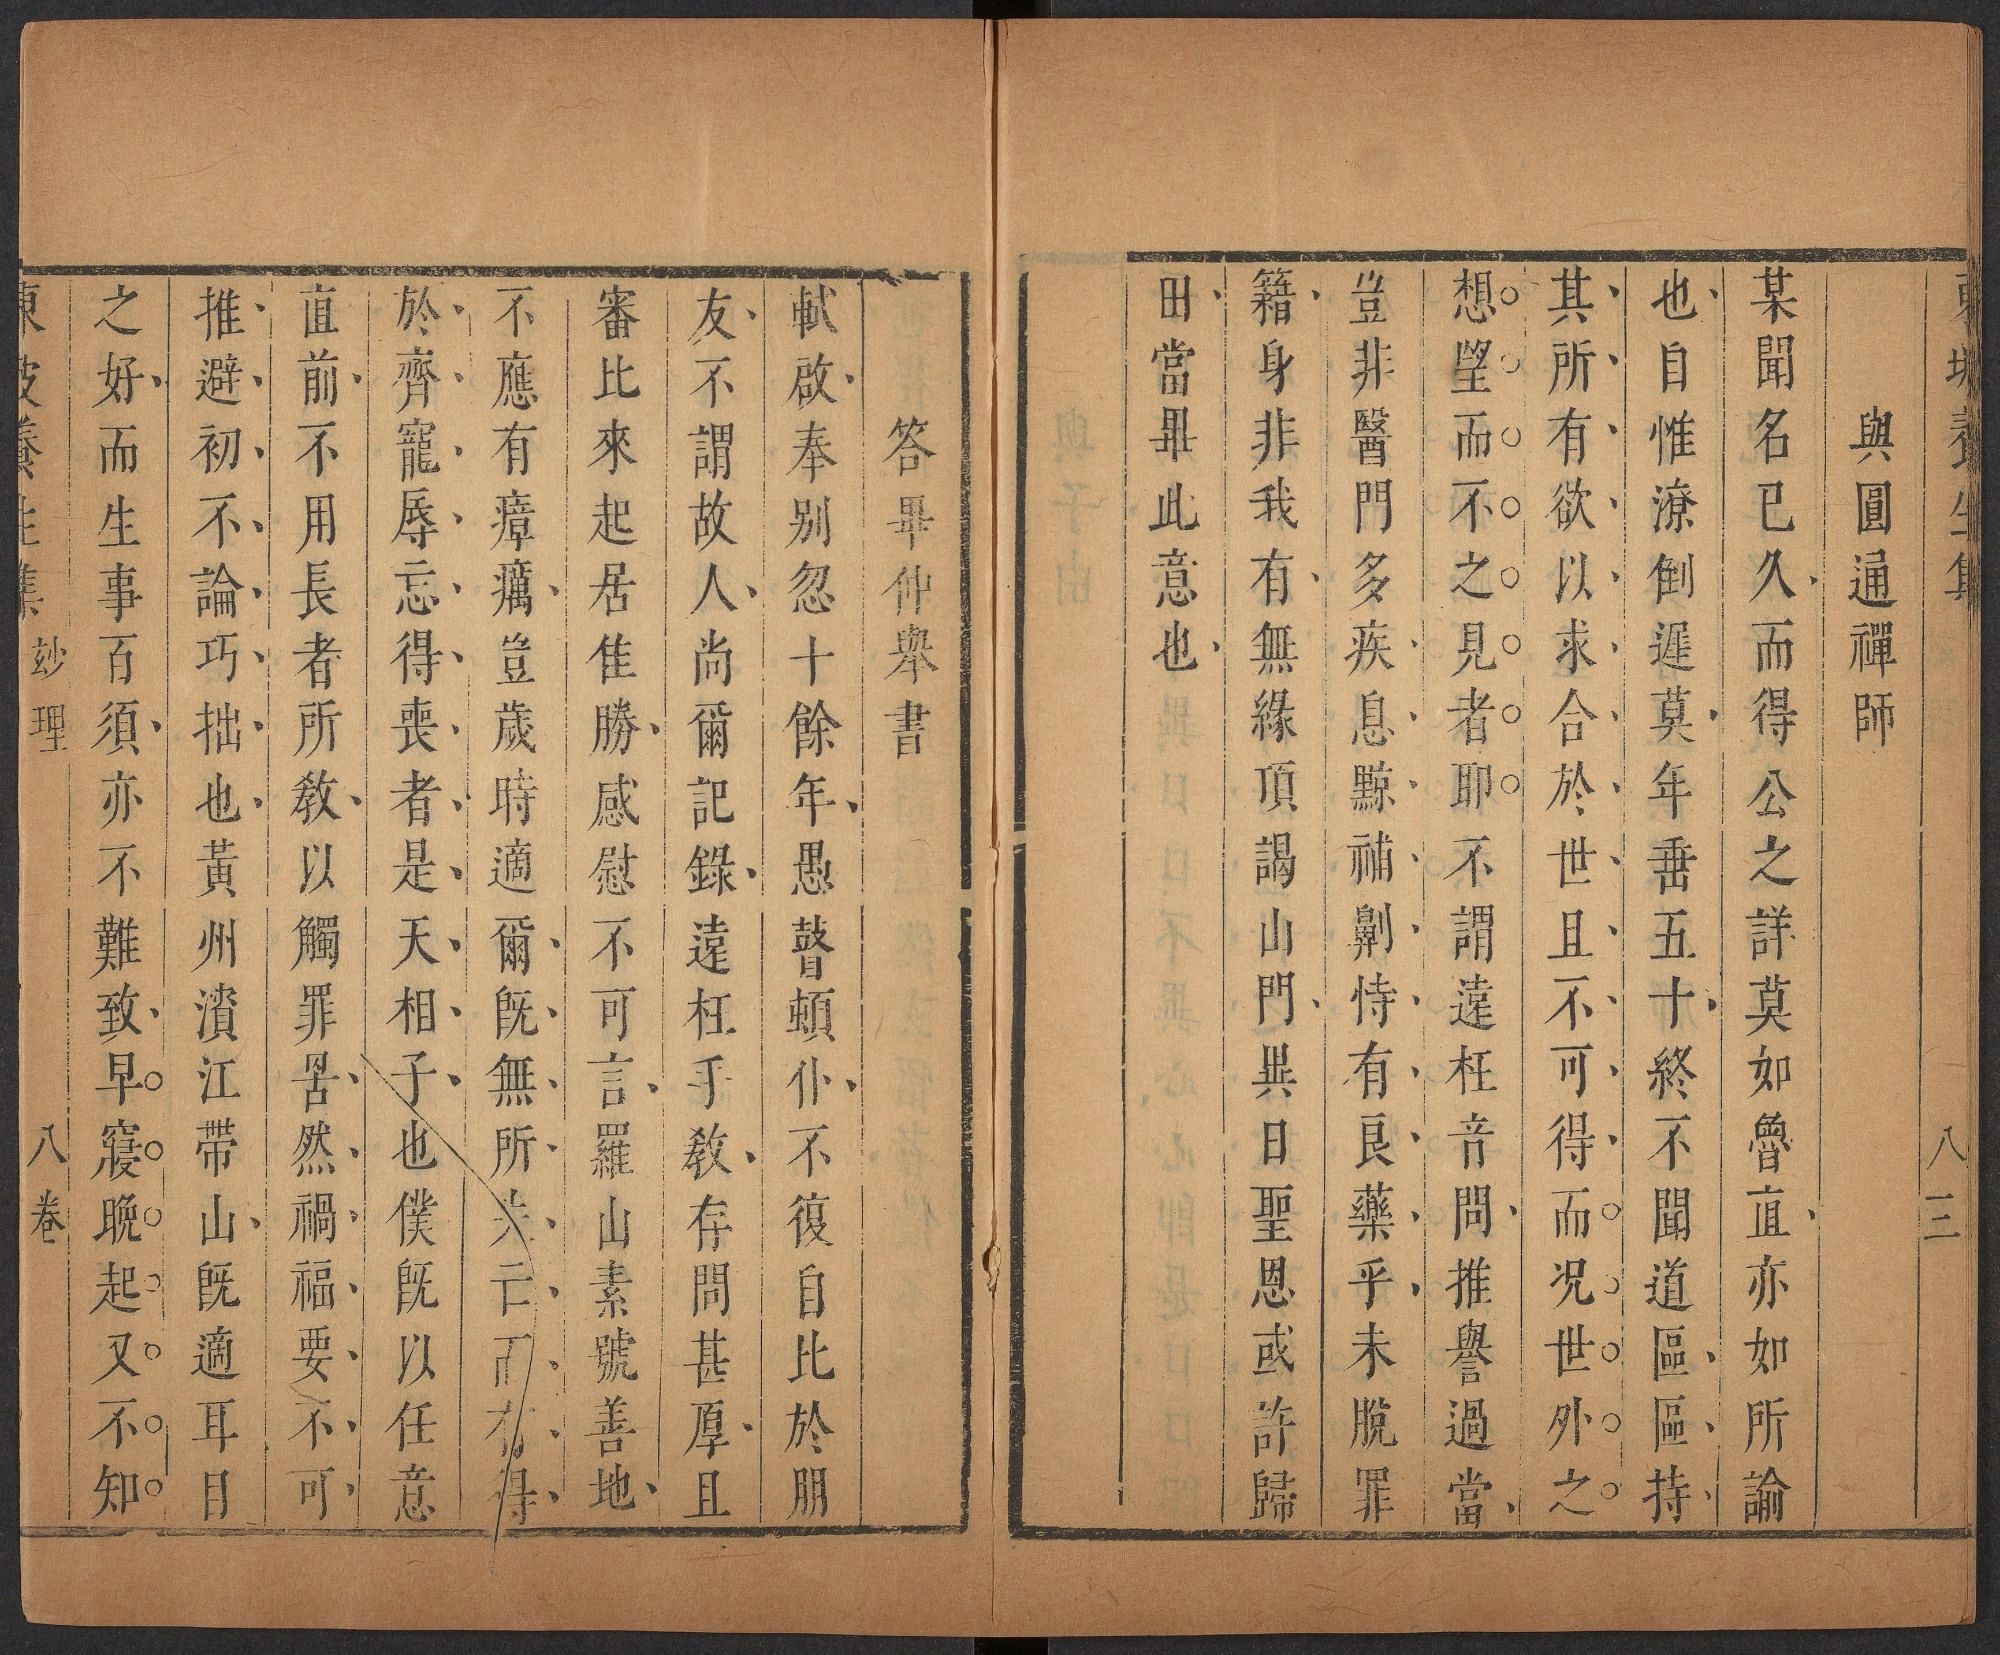 東坡養生集
八 三
與圓通禪師
某聞名已久而得公之詳莫如魯直亦如所諭
也自惟潦倒遲莫年垂五十終不聞道區區持
其所有欲以求合於世且不可得而况世外之
想望而不之見者耶不謂遠枉音問推譽過當
豈非醫門多疾息黥補劓恃有良藥乎未脫罪
籍身非我有無緣頂謁山門異日聖恩或許歸
田當畢此意也
答畢仲舉書
軾啟奉別忽十餘年愚瞽頓仆不復自比於朋
友不謂故人尚爾記錄遠枉手教存問甚厚且
審比來起居隹勝感慰不可言羅山素號善地
不應有瘴癘豈歲時適爾既無所失亡而有得
於齊寵辱忘得喪者是天相子也僕既以任意
直前不用長者所教以觸罪罟然禍福要不可
推避初不論巧拙也黃州濱江帶山既適耳目
之好而生事百須亦不難致早寢晚起又不知
東坡養生集 玅理 八卷